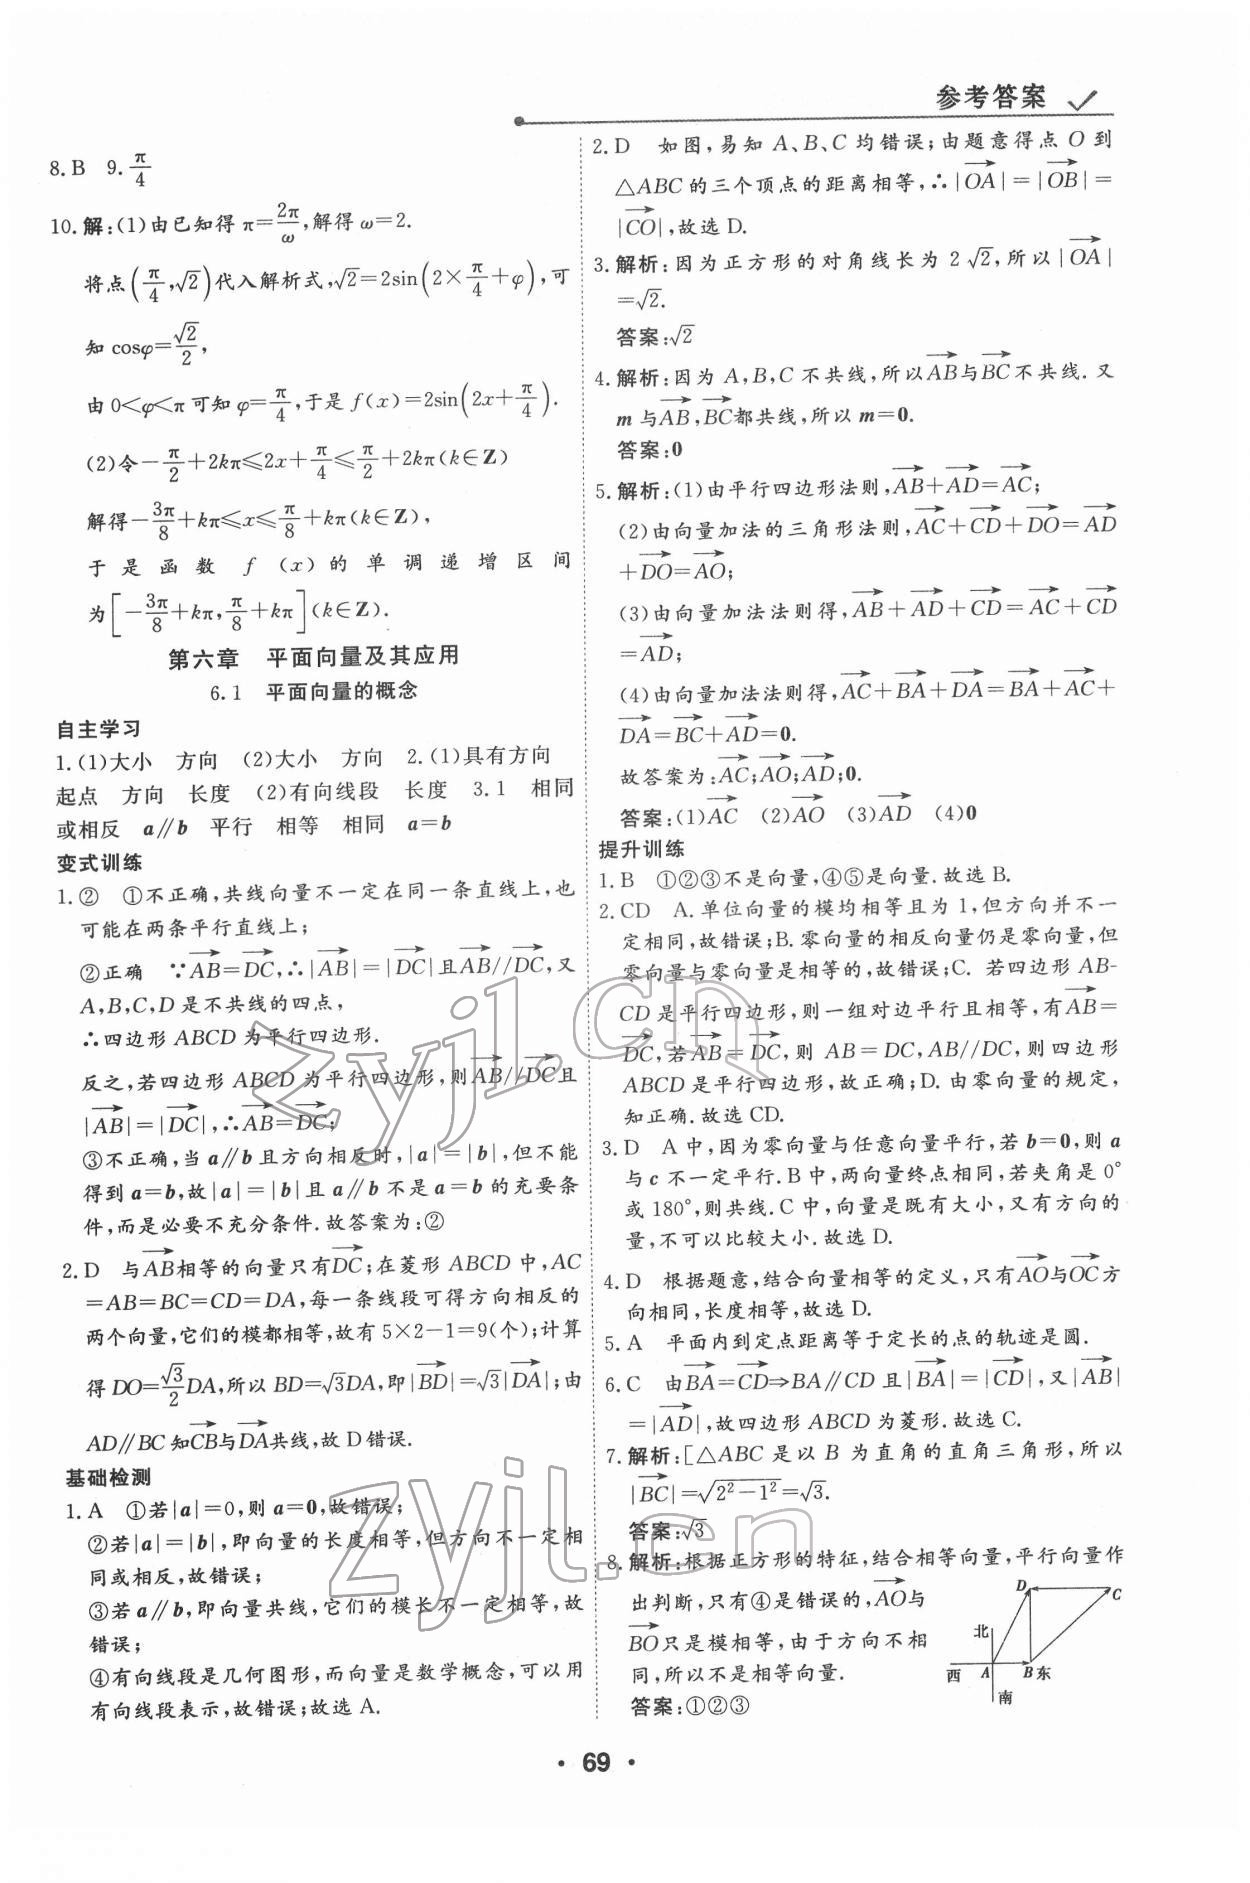 参考答案
8.B 9.π/4
10.解:(1)由已知得 π=2π/ω,解得 ω=2.
将点(π/4,√2)代入解析式,√2=2sin(2×π/4+φ),可
知 cosφ=√2/2,
由 0<φ<π 可知 φ=π/4,于是 f(x)=2sin(2x+π/4).
(2)令-π/2+2kπ≤2x+π/4≤π/2+2kπ(k∈Z)
解得-3π/8+kπ≤x≤π/8+kπ(k∈Z),
于是函数 f(x)的单调递增区间
为[-3π/8+kπ,π/8+kπ](k∈Z).
第六章 平面向量及其应用
6.1 平面向量的概念
自主学习
1.(1)大小 方向 (2)大小 方向 2.(1)具有方向
起点 方向 长度 (2)有向线段 长度 3.1 相同
或相反 a∥b 平行 相等 相同 a=b
变式训练
1.② ①不正确,共线向量不一定在同一条直线上,也
可能在两条平行直线上;
②正确 ∵→AB=→DC,∴|→AB|=|→DC|且→AB//→DC,又
A,B,C,D是不共线的四点,
∴四边形 ABCD 为平行四边形.
反之,若四边形 ABCD 为平行四边形,则→AB//→DC且
|→AB|=|→DC|,∴→AB=→DC;
③不正确,当 a∥b 且方向相反时,|a|=|b|,但不能
得到 a=b,故|a|=|b|且 a∥b 不是 a=b 的充要条
件,而是必要不充分条件.故答案为:②
2.D 与→AB相等的向量只有→DC;在菱形 ABCD 中,AC
=AB=BC=CD=DA,每一条线段可得方向相反的
两个向量,它们的模都相等,故有 5×2-1=9(个);计算
得 DO=√3/2DA,所以 BD=√3DA,即|→BD|=√3|→DA|;由
AD∥BC知→CB与→DA共线,故 D 错误.
基础检测
1.A ①若|a|=0,则 a=0,故错误;
②若|a|=|b|,即向量的长度相等,但方向不一定相
同或相反,故错误;
③若 a∥b,即向量共线,它们的模长不一定相等,故
错误;
④有向线段是几何图形,而向量是数学概念,可以用
有向线段表示,故错误;故选 A.
2.D 如图,易知 A、B、C 均错误;由题意得点 O 到
△ABC的三个顶点的距离相等,∴|→OA|=|→OB|=
|→CO|,故选 D.
3.解析:因为正方形的对角线长为 2√2,所以|→OA|
=√2.
答案:√2
4.解析:因为 A,B,C 不共线,所以→AB与→BC不共线.又
m 与→AB,→BC都共线,所以 m=0.
答案:0
5.解析:(1)由平行四边形法则,→AB+→AD=→AC;
(2)由向量加法的三角形法则,→AC+→CD+→DO=→AD
+→DO=→AO;
(3)由向量加法法则得,→AB+→AD+→CD=→AC+→CD
=→AD;
(4)由向量加法法则得,→AC+→BA+→DA=→BA+→AC+
→DA=→BC+→AD=0.
故答案为:→AC;→AO;→AD;0.
答案:(1)→AC (2)→AO (3)→AD (4)0
提升训练
1.B ①②③不是向量,④⑤是向量.故选 B.
2.CD A.单位向量的模均相等且为 1,但方向并不一
定相同,故错误;B.零向量的相反向量仍是零向量,但
零向量与零向量是相等的,故错误;C. 若四边形 AB-
CD是平行四边形,则一组对边平行且相等,有→AB=
→DC,若→AB=→DC,则 AB=DC,AB//DC,则四边形
ABCD是平行四边形,故正确;D. 由零向量的规定,
知正确.故选 CD.
3.D A 中,因为零向量与任意向量平行,若 b=0,则 a
与 c 不一定平行.B 中,两向量终点相同,若夹角是 0°
或 180°,则共线.C 中,向量是既有大小,又有方向的
量,不可以比较大小.故选 D.
4.D 根据题意,结合向量相等的定义,只有→AO与→OC方
向相同,长度相等,故选 D.
5.A 平面内到定点距离等于定长的点的轨迹是圆.
6.C 由→BA=→CD⇒BA∥CD 且|→BA|=|→CD|,又|→AB|
=|→AD|,故四边形 ABCD 为菱形.故选 C.
7.解析:[△ABC 是以 B 为直角的直角三角形,所以
|→BC|=√2²-1²=√3.
答案:√3
8.解析:根据正方形的特征,结合相等向量,平行向量作
出判断,只有④是错误的,→AO与
→BO只是模相等,由于方向不相
同,所以不是相等向量.
答案:①②③
D
C
北
西 A B 东
南
• 69 •
zyjl.cn
zyjl.cn